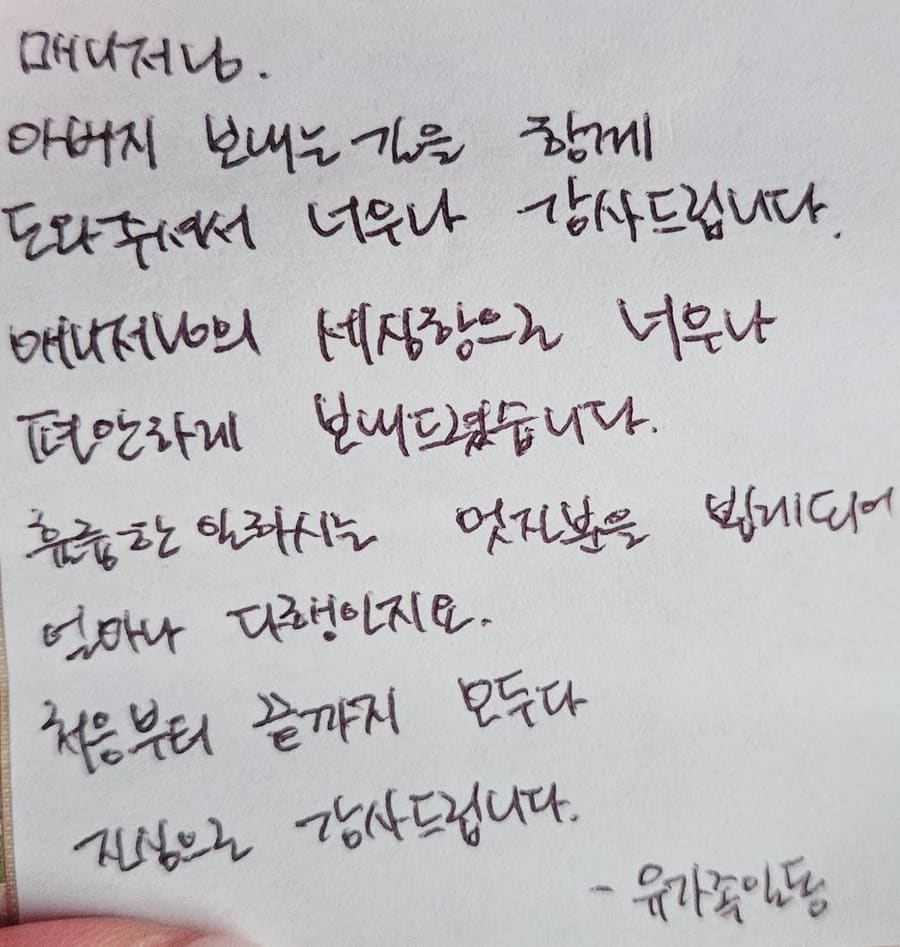 매니저님.
아버지 보내는 길을 함께
도와주셔서 너무나 감사드립니다.
매니저님의 세심함으로 너무나
편안하게 보내드렸습니다.
훌륭한 일하시는 멋진분을 뵙게되어
얼마나 다행인지요.
처음부터 끝까지 모두다
진심으로 감사드립니다.
- 유가족일동